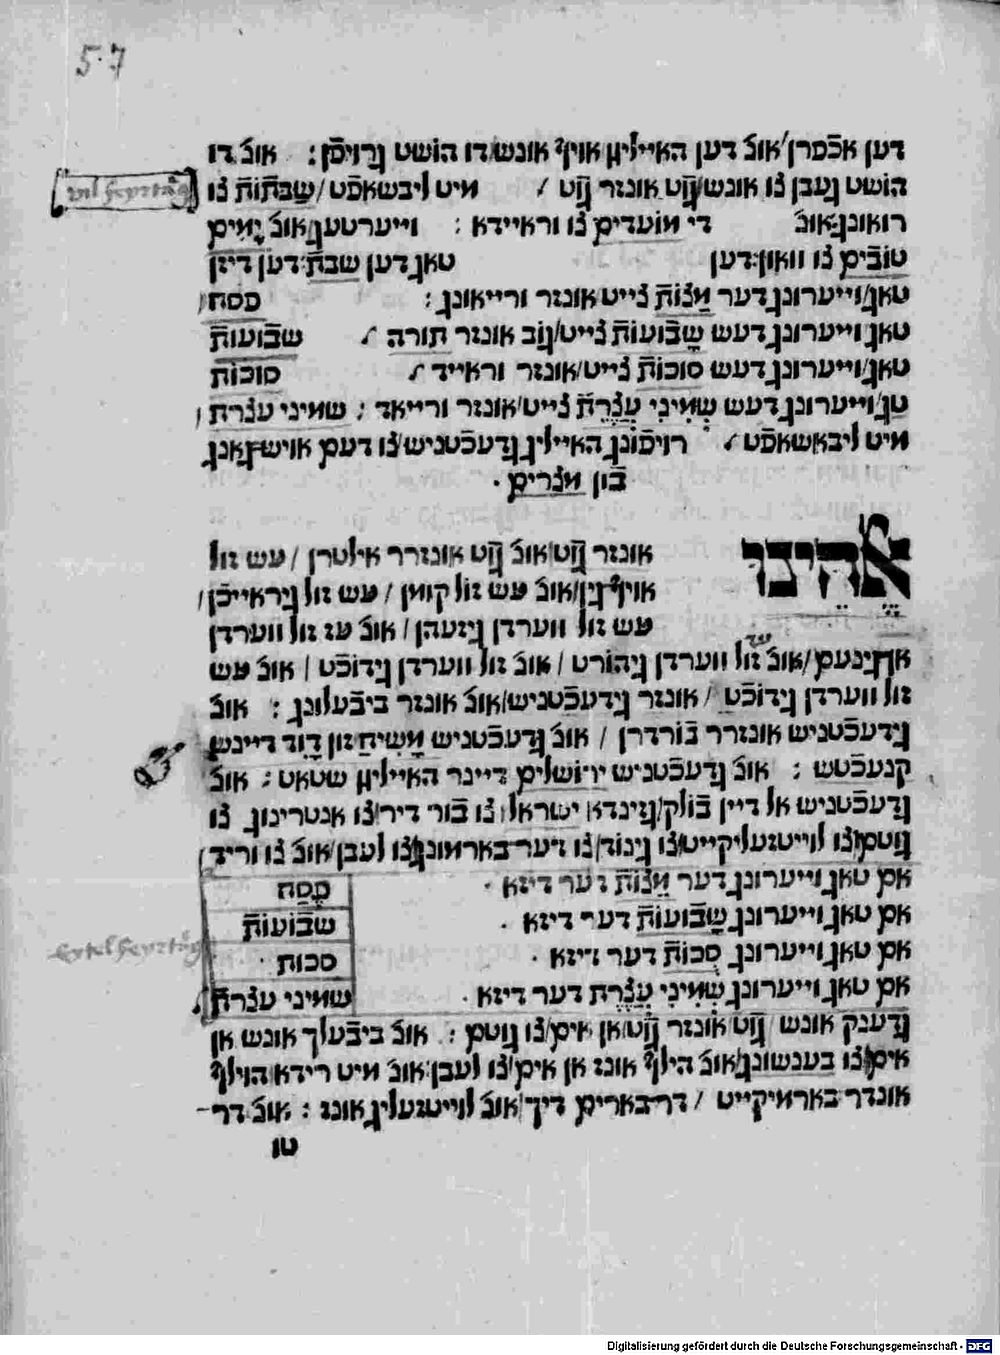 5.7
דען אכֿפרן/אונ דען האייליגן אויף אונש/דו הושט גרויפֿן: אונ דו
הושט געבן צו אונש/גוט אונזר גוט / מיט ליבשאפֿט/שַבָתוֹת צו
רואונג/אונ די מוֹעדים צו וראיידא: וייערטעג/אונ יָמִים
טובֿים צו וואון/דען טאג דען שבת/דען דיזן
טאג/וייערונג דער מַצוֹת צייט אונזר ורייאונג: פסח
טאג וייערונג דעש שָבֿוּעוֹת צייט/גוב אונזר תורה / שבֿועות
טאג/וייערונג דעש סוכוֹת צייט/אונזר וראייד / סוכות
טג/וייערונג דעש שְמִינִי עֲצֶרֶת צייט/אונזר ורייאד: שמיני עצרת
מיט ליבאשאפֿט / רויפֿונג האיילין גדעכֿטניש/צו דעם אוישגאנג
בֿון מצרים.
אֱלֹהֵינוּ אונזר גוט/אונ גוט אונזרר אילטרן / עש זול
אויף גין/אונ עש זול קומן / עש זול גיראייכֿן/
עש זול ווערדן גיזעהן/ אונ עז זול ווערדן
אן גינעם/אונ עז זול ווערדן גיהורט/ אונ זול ווערדן גידוכֿט / אונ עש
זול ווערדן גידוכֿט / אונזר גידעכֿטניש/אונ אונזר ביבֿעלונג: אונ
גידעכֿטניש אונזרר בֿורדרן / אונ גדעכֿטניש מָשִיחַ זון דָוִד דיינש
קנעכֿטש: אונ גדעכֿטניש ירושלים דיינר האייליגן שטאט: אונ
גדעכֿטניש אל דיין בֿולק/גזינדא ישראל/ צו בֿור דיר/צו אנטרינונג צו
גוטם/צו לוייטזעליקייט/צו גינוד/צו דער בארמונג/צו לעבן/אונ צו וריד/
אם טאג וייערונג דער מַצוֹת דער דיזא. פֶסַח
אם טאג וייערונג שָבֿוּעוֹת דער דיזא. שבֿועות
אם טאג וייערונג סֻכּוֹת דער דיזא. סכות
אם טאג וייערונג שְמִינִי עֲצֶרֶת דער דיזא. שמיני עצרת
גדענק אונש/ גוט/אונזר גוט/אן אים/צו גוטם: אונ ביבֿעלך אונש אן
אים/צו בענשונג/אונ הילף אונז אן אים/צו לעבן/אונ מיט רידא הוילף
אונדר בארמיקייט / דר בארים דיך/אונ לוייטזעליג אונז: אונ דר
טו